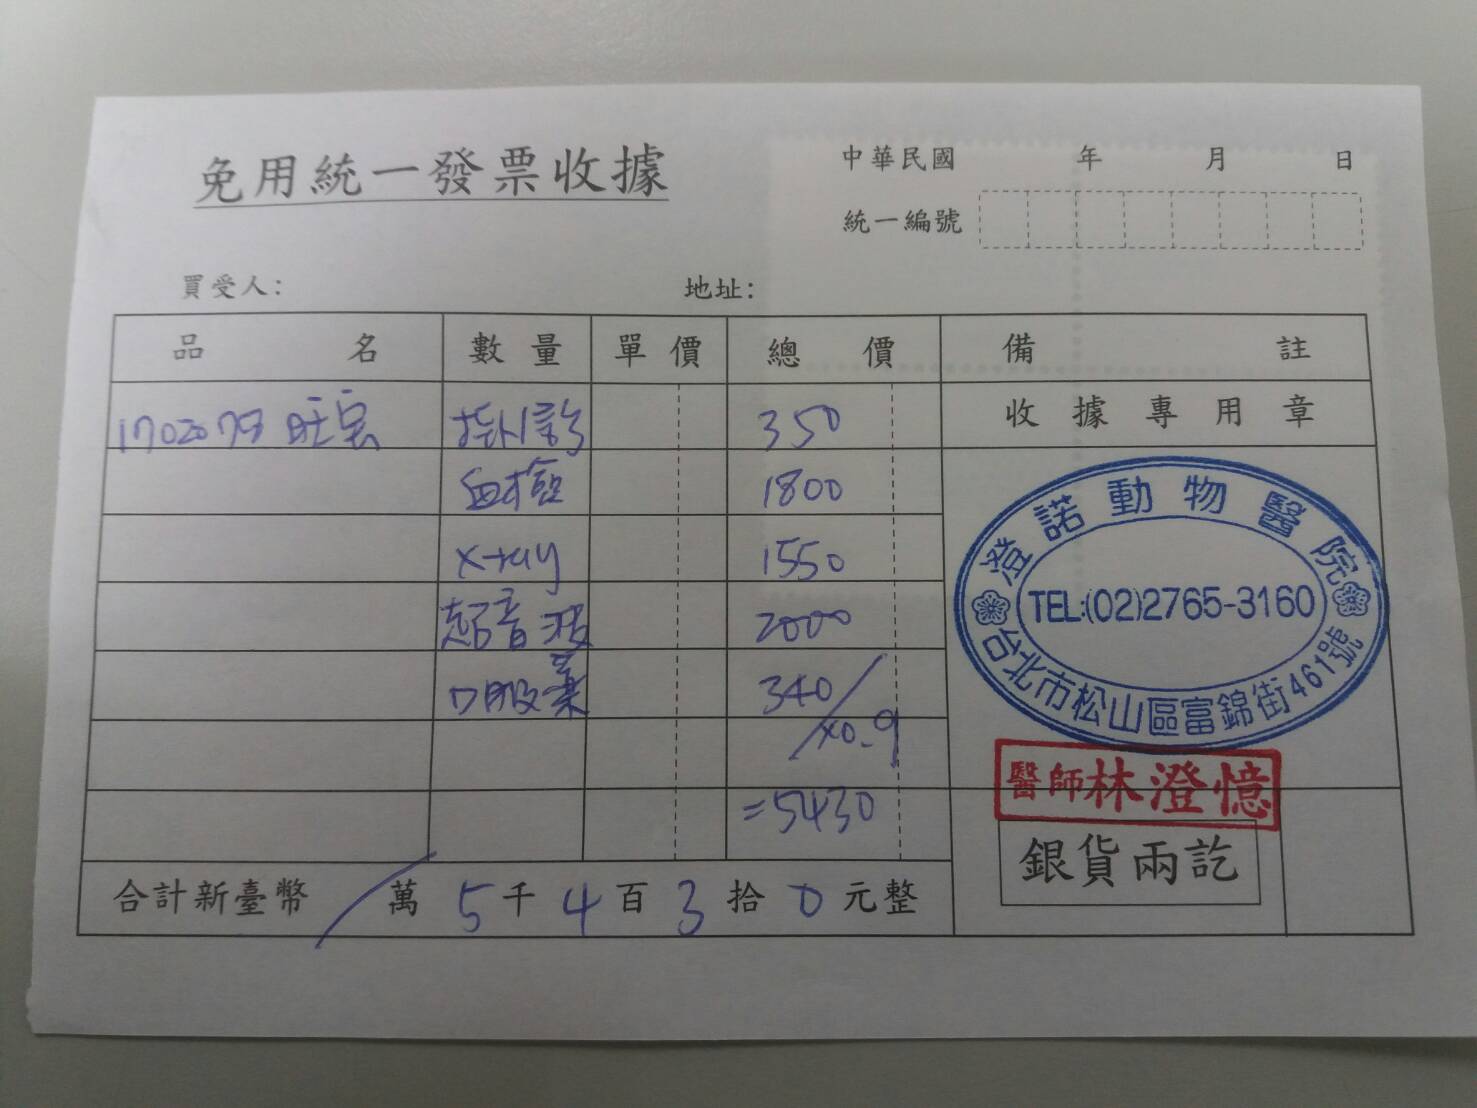 免用統一發票收據
中華民國 年 月 日
統一編號
買受人: 地址:
品名 數量 單價 總價 備註
1702079 旺宏 掛診 350 收據專用章
血檢 1800
x-ray 1550
超音波 2000
口服藥 340
x0.9
=5430
澄諾動物醫院
TEL:(02)2765-3160
台北市松山區富錦街461號
醫師林澄憶
銀貨兩訖
合計新臺幣 / 萬 5 千 4 百 3 拾 0 元整